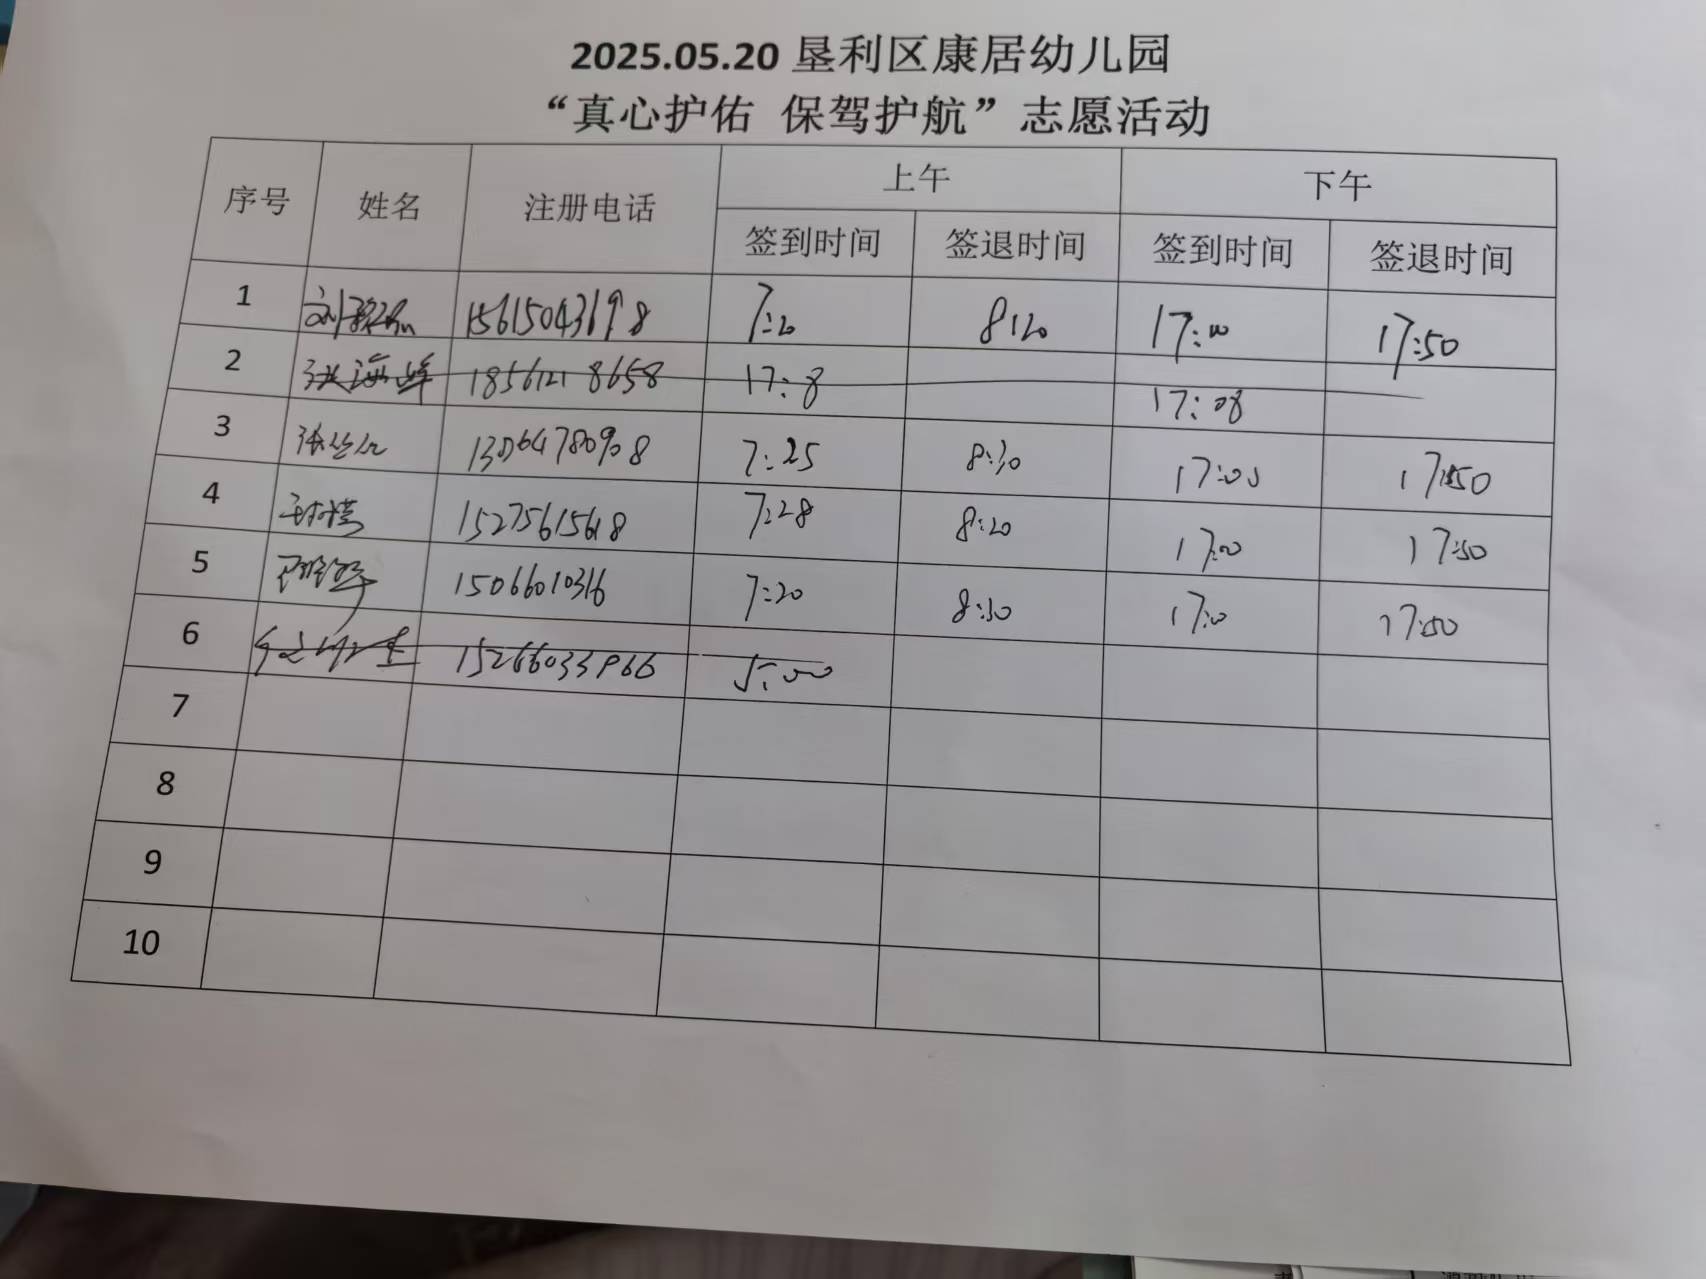 2025.05.20 垦利区康居幼儿园
“真心护佑 保驾护航”志愿活动
序号 姓名 注册电话 上午 下午
签到时间 签退时间 签到时间 签退时间
1 15615043698 7:20 8:20 17:00 17:50
2 海峰 18561218658 17:8 17:08
3 13064780908 7:25 8:30 17:00 17:50
4 15275615618 7:28 8:20 17:00 17:50
5 15066010316 7:20 8:30 17:0 17:50
6 15266033966 5:00
7
8
9
10